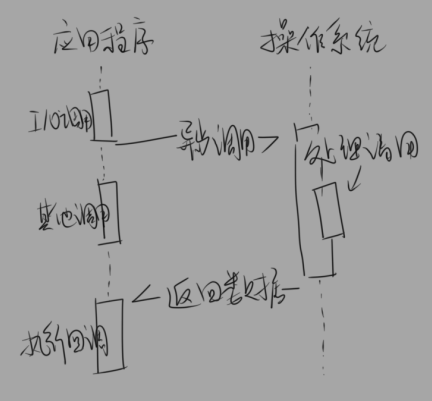 应用程序
操作系统
I/O调用
异步调用
处理调用
其他调用
返回数据
执行回调